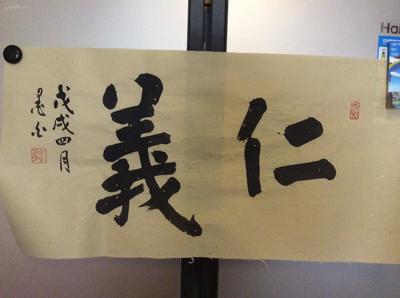 仁義
戊戌四月
Hai